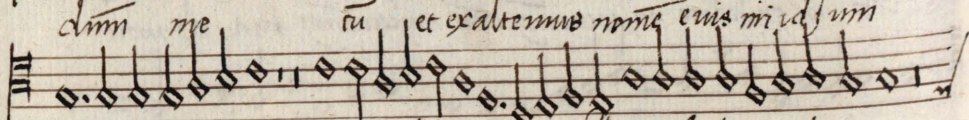 dnm̄ me cū et exaltemus nomē eius in idsum